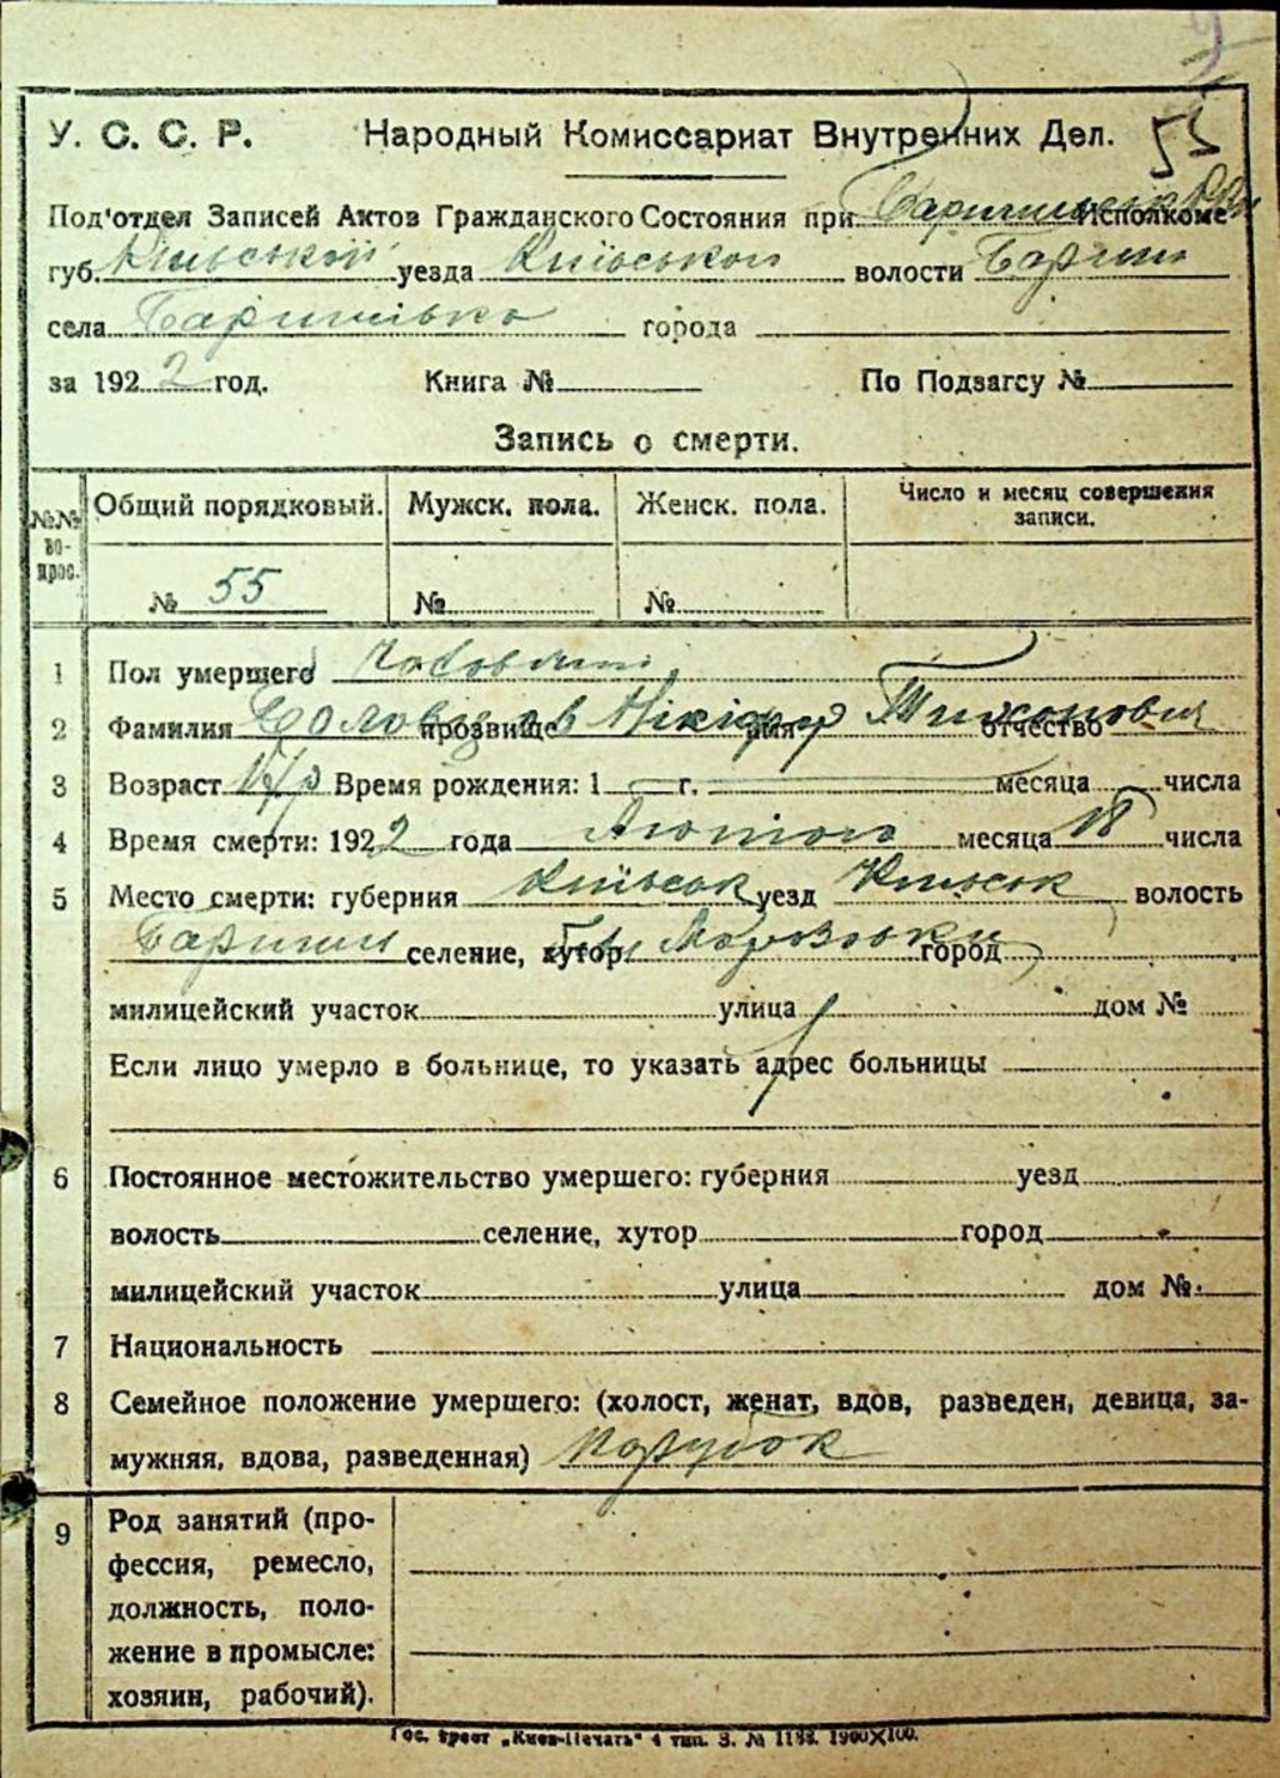 55
У. С. С. Р. Народный Комиссариат Внутренних Дел.
Под'отдел Записей Актов Гражданского Состояния при Исполкоме
губ. Київської уезда Київського волости Бариш
села Баришівка города
за 1922 год. Книга № По Подзагсу №
Запись о смерти.
№№ вопрос. Общий порядковый. Мужск. пола. Женск. пола. Число и месяц совершения записи.
№ 55 № №
1 Пол умершего Чоловічий
2 Фамилия прозвище Никифор имя Тихонович отчество
3 Возраст Время рождения: 1 г. месяца числа
4 Время смерти: 1922 года Лютого месяца 18 числа
5 Место смерти: губерния Київськ уезд Київськ волость
Бариш селение, хутор Морозовки город
милицейский участок улица дом №
Если лицо умерло в больнице, то указать адрес больницы
6 Постоянное местожительство умершего: губерния уезд
волость селение, хутор город
милицейский участок улица дом №
7 Национальность
8 Семейное положение умершего: (холост, женат, вдов, разведен, девица, за-
мужняя, вдова, разведенная) Парубок
9 Род занятий (про-
фессия, ремесло,
должность, поло-
жение в промысле:
хозяин, рабочий).
Гос. трест „Киев-Печать" 4 тип. З. № 1188. 1900×100.